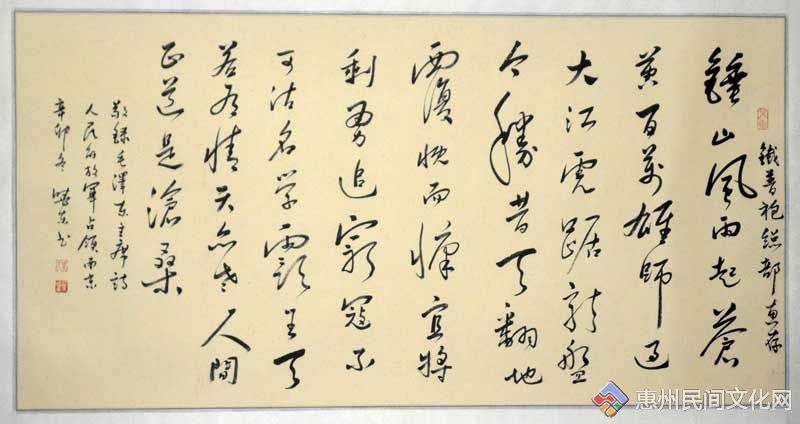 部惠存
鍾山風雨起蒼
黄百萬雄師过
大江虎踞龍盤
今勝昔天翻地
覆慨而慷宜將
剩勇追窮寇不
可沽名學霸王天
若有情天亦老人間
正道是滄桑
敬録毛澤东主席詩
人民解放軍占領南京
辛卯冬 书
惠州民间文化网